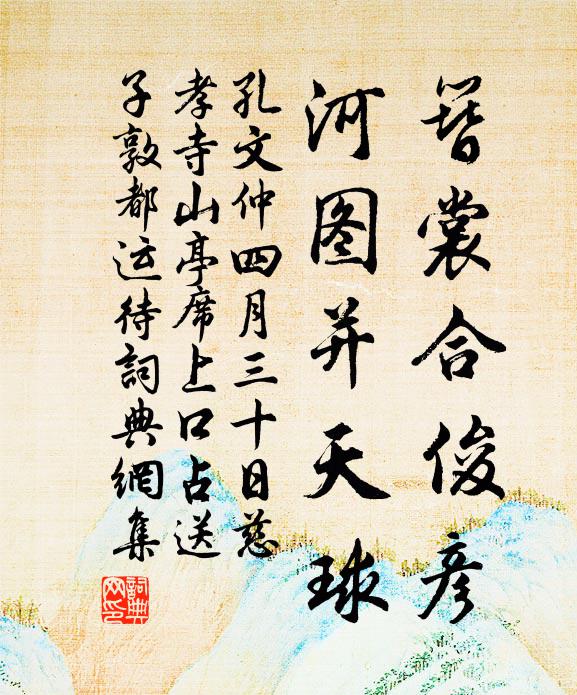 簪裳合俊彦
河图并天球
孔文仲四月三十日慈
孝寺山亭席上口占送
子敦都运待詞典網集
詞典网印